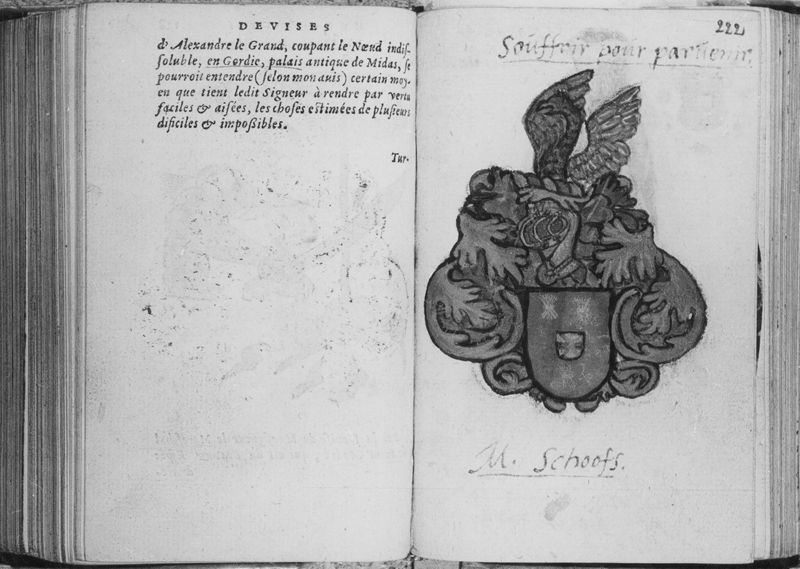 DEVISES
d'Alexandre le Grand, coupant le Nœud indiſ-
ſoluble, en Gordie, palais antique de Midas, ſe
pourroit entendre (ſelon mon auis) certain moy-
en que tient ledit Signeur à rendre par vertu
faciles & aiſées, les choſes eſtimées de pluſieurs
dificiles & impoßibles.
Tur-
222
Souffrir pour paruenir.
M. Schoofs.